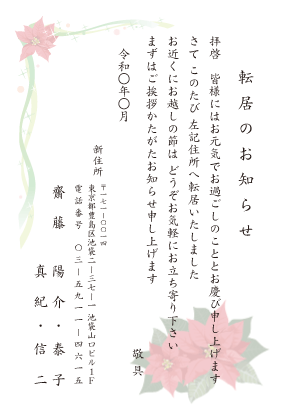 転居のお知らせ
拝啓 皆様にはお元気でお過しのこととお慶び申し上げます
さて このたび 左記住所へ転居いたしました
お近くにお越しの節は どうぞお気軽にお立ち寄り下さい
まずはご挨拶かたがたお知らせ申し上げます
敬具
令和〇年〇月
新住所
〒一七一ー〇〇一四
東京都豊島区池袋二ー三七ー一 池袋山口ビル1F
電話番号 〇三ー五九一一ー四六一五
齋藤 陽介・泰子
真紀・信二